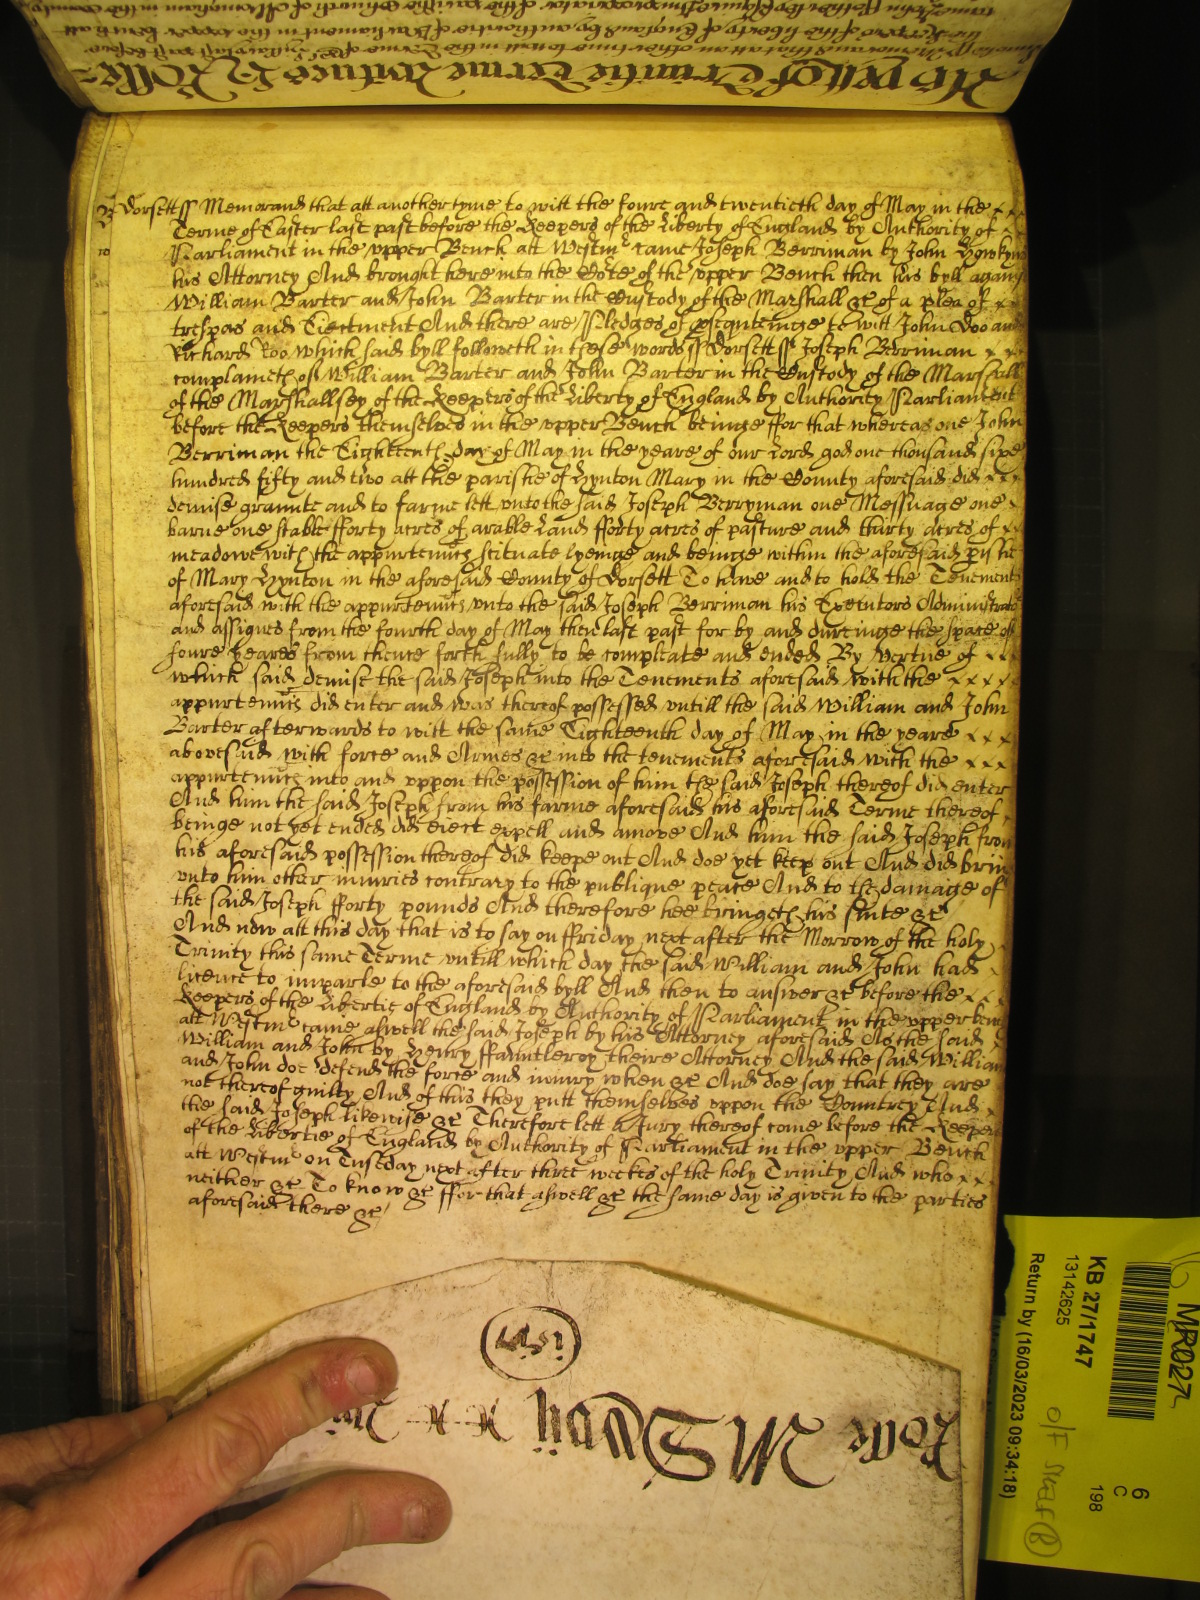 Dorsett ss Memorand that att another tyme to witt the foure and twentieth day of May in the
Terme of Easter last past before the Keepers of the Liberty of England by Authority of
Parliament in the vpper Bench att Westmr came Joseph Berriman by John
his Attorney And brought here into the Cote of the vpper Bench then his byll against
William Barter and John Barter in the Custody of the Marshall &c of a plea of
trespas and Eiectment And there are Pledges of psequteinge to witt John Doo and
Richard Roo which said byll followeth in these words ss Dorsett ss Joseph Berriman
complaineth of William Barter and John Barter in the Custody of the Marshall
of the Marshallsey of the Keepers of the Liberty of England by Authority Parliament
before the Keepers themselves in the vpper Bench beinge ffor that whereas one John
Berriman the Eighteenth day of May in the yeare of our Lord god one thousand sixe
hundred fifty and two att the parishe of Hynton Mary in the County aforesaid did
demise graunte and to farme lett vnto the said Joseph Berryman one Messuage one
barne one stable fforty acres of arable Land fforty acres of pasture and thirty acres of
meadowe with the appurtenncs scituate lyeinge and beinge within the aforesaid pishe
of Mary Hynton in the aforesaid County of Dorsett To have and to hold the Tenements
aforesaid with the appurtenncs vnto the said Joseph Berriman his Executors Administrators
and assignes from the fourth day of May then last past for by and dureinge the space of
foure yeares from thence forth fully to be compleate and ended By vertue of
which said demise the said Joseph into the Tenements aforesaid with the
appurtenncs did enter and was thereof possessed vntill the said William and John
Barter afterwards to witt the same Eighteenth day of May in the yeare
abovesaid with force and Armes &c into the tenements aforesaid with the
appurtenncs into and vppon the possession of him the said Joseph thereof did enter
And him the said Joseph from his farme aforesaid his aforesaid Terme thereof
beinge not yet ended did eiect expell and amove And him the said Joseph from
his aforesaid possession thereof did keepe out And doe yet keep out And did bring
vnto him other iniuries contrary to the publique peace And to the damage of
the said Joseph fforty pounds And therefore hee bringeth his suite &c
And now att this day that is to say on ffriday next after the Morrow of the holy
Trinity this same Terme vntill which day the said William and John had
licence to imparle to the aforesaid byll And then to answer &c before the
Keepers of the Libertie of England by Authority of Parliament in the vpper bench
att Westmr came aswell the said Joseph by his Attorney aforesaid As the said
William and John by Henry ffauntleroy theire Attorney And the said William
and John doe defend the force and iniury when &c And doe say that they are
not thereof guilty And of this they putt themselves vppon the Countrey And
the said Joseph likewise &c Therefore lett a Jury thereof come before the Keepers
of the Libertie of England by Authority of Parliament in the vpper Bench
att Westmr on Tuseday next after three weekes of the holy Trinity And who
neither &c To know &c ffor that aswell &c the same day is given to the parties
aforesaid there &c
KB 27/1747
13142625
Return by (16/03/2023 09:34:18)
MR027
6
C
198
O/F Shelf